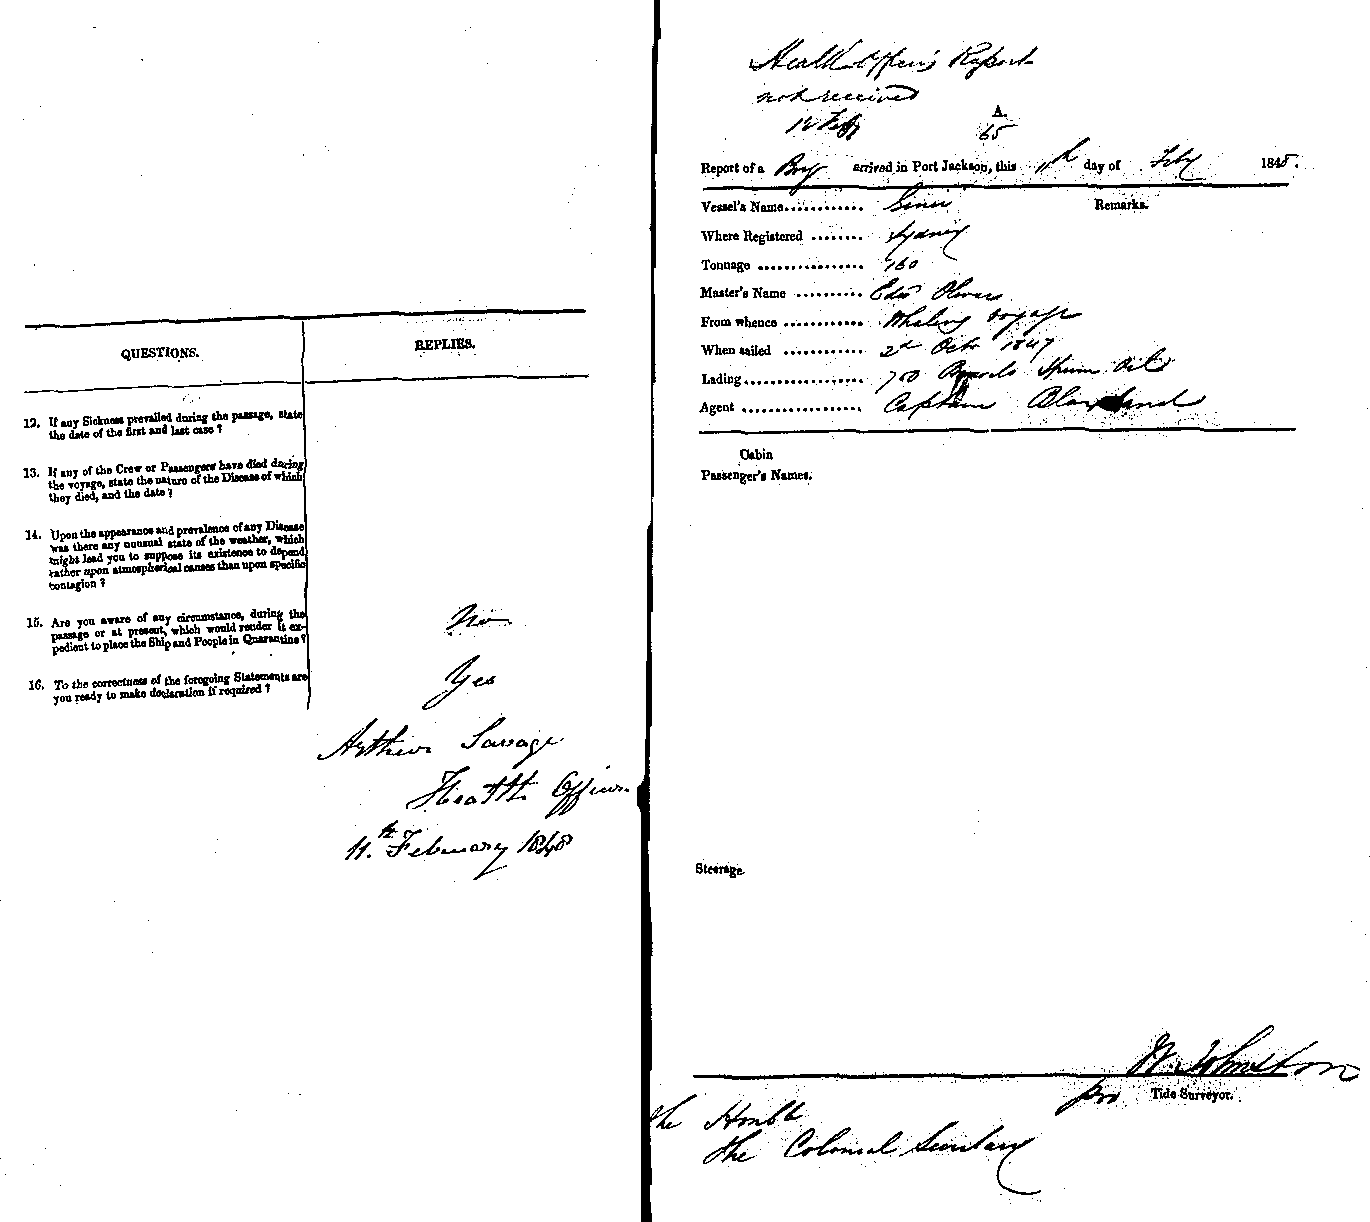 QUESTIONS.
REPLIES.
12. If any Sickness prevailed during the passage, state
the date of the first and last case ?
13. If any of the Crew or Passengers have died during
the voyage, state the nature of the Disease of which
they died, and the date ?
14. Upon the appearance and prevalence of any Disease
was there any unusual state of the weather, which
might lead you to suppose its existence to depend
rather upon atmospherical causes than upon specific
contagion ?
15. Are you aware of any circumstance, during the
passage or at present, which would render it ex-
pedient to place the Ship and People in Quarantine ?
No
16. To the correctness of the foregoing Statements are
you ready to make declaration if required ?
Yes
Arthur Savage
Health Officer
11.th February 1848
Health Officer's Report
not received
12 Feby
A.
65
Report of a Brig arrived in Port Jackson, this 11th day of Feby 1848.
Vessel's Name............
Remarks.
Where Registered ........ Sydney
Tonnage ................ 160
Master's Name .......... Edwd
From whence ............ Whaling voyage
When sailed ............ 2nd Octr 1847
Lading.................. 700 Barrels Sperm Oil
Agent .................. Captain Blaxland
Cabin
Passenger's Names.
Steerage.
W. Johnston
pro Tide Surveyor.
The Honble
The Colonial Secretary